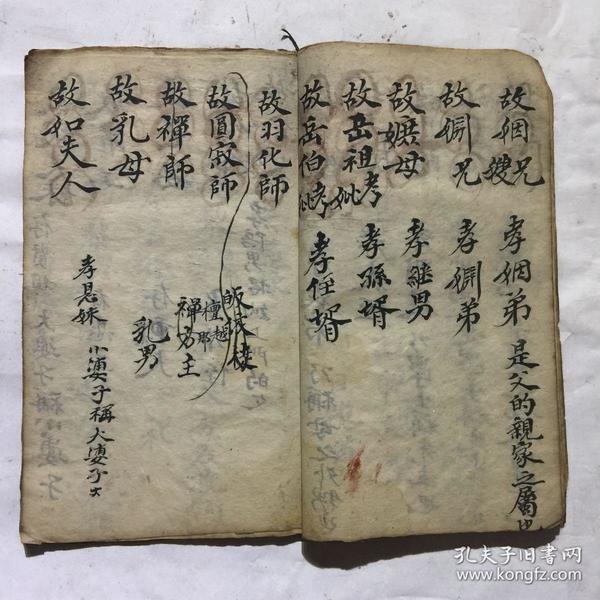 故姻兄嫂 孝姻弟 是父的親家之屬也
故姻兄 孝姻弟
故嬤母 孝継男
故岳祖考妣 孝孫婿
故岳伯考妣 孝任婿
故羽化師
故圓寂師
檀越
那
故禪師 禪男主
故乳母 乳男
故如夫人 孝息妹 小婆子稱大婆子
孔夫子旧书网
www.kongfz.com